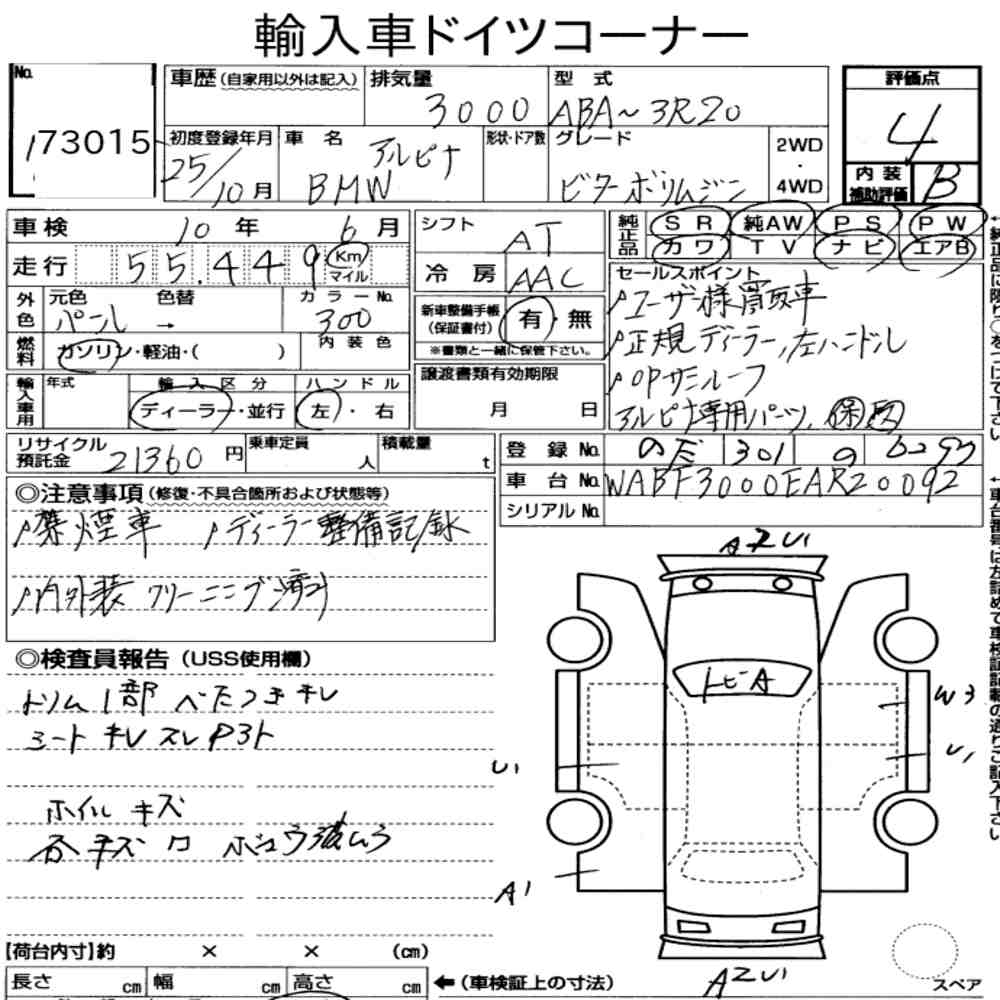 輸入車ドイツコーナー
No. 173015
車歴 (自家用以外は記入) 排気量 3000 型式 ABA~3R20
評価点 4
初度登録年月 25/10月 車名 アルピナ BMW 形状・ドア数 グレード ビターボリムジン 2WD・4WD
内装補助評価 B
車検 10年 6月
シフト AT
純正品 SR 純AW PS PW
カワ TV ナビ エアB
走行 55.449 Km マイル
冷房 AAC
セールスポイント
ユーザー様買取車
正規ディーラー, 左ハンドル
OPサンルーフ
アルピナ専用パーツ, 保 取
外色 元色 パール 色替 → カラーNo. 300
新車整備手帳 (保証書付) 有・無
※書類と一緒に保管下さい。
燃料 ガソリン・軽油・( ) 内装色
譲渡書類有効期限 月 日
輸入車用 年式 輸入区分 ディーラー・並行 ハンドル 左・右
リサイクル預託金 21360円 乗車定員 人 積載量 t
登録No. のだ 301 の
車台No. WABF3000EAR20092
シリアルNo.
◎注意事項 (修復・不具合箇所および状態等)
禁煙車 ディーラー整備記録
内外装クリーニング済み
◎検査員報告 (USS使用欄)
トリム1部 べたつき キレ
シート キレ スレ
ホイル キズ
各キズ
AZU1
トビA
W3
U1
U1
A1
AZU1
[荷台内寸]約 × × (cm)
長さ cm 幅 cm 高さ cm
←(車検証上の寸法)
スペア